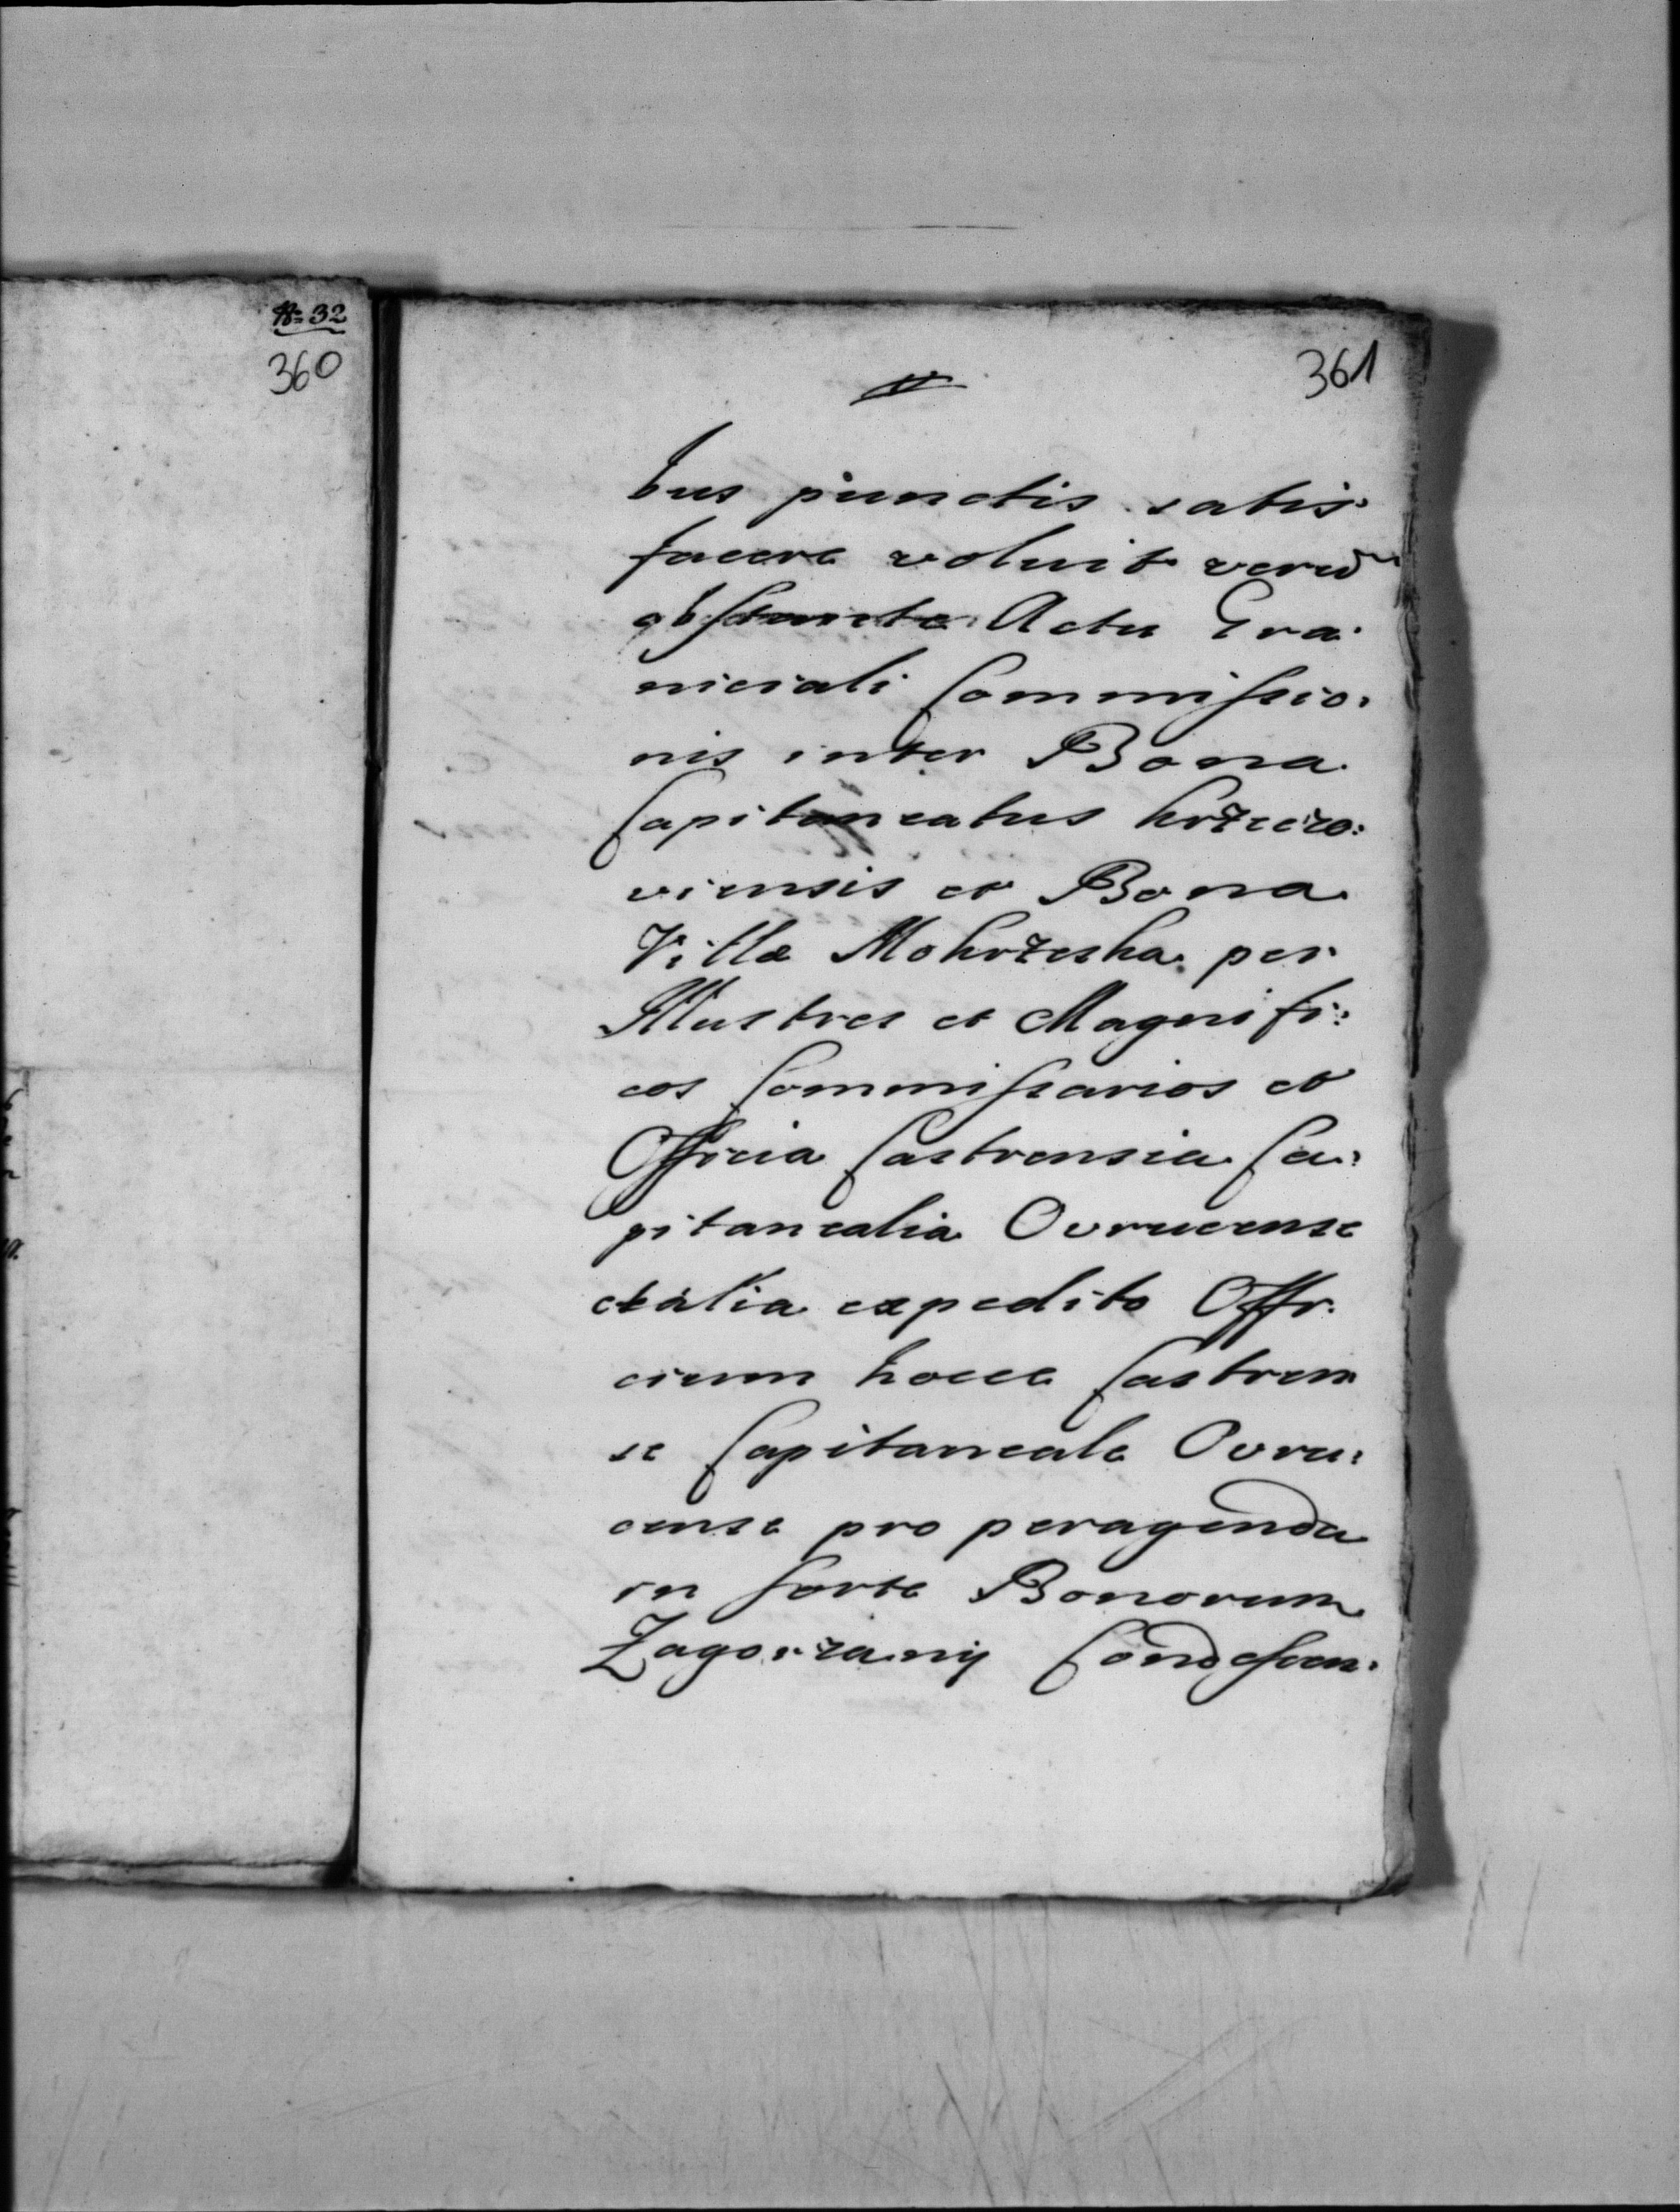 № 32
360
361
bus punctis satis:
facere voluit verum
obstante Actu Gra:
niciali Commissio:
nis inter Bona
Capitaneatus krzeczo:
viensis et Bona
Villæ Mokrzeska per
Illustres et Magnifi:
cos Commissarios et
Officia Castrensia Ca:
pitanealia Ovrucense
et alia expedito Offi:
cium hocce Castren
se Capitaneale Ovru:
cense pro peragenda
in sorte Bonorum
Zagorzany Condescen: